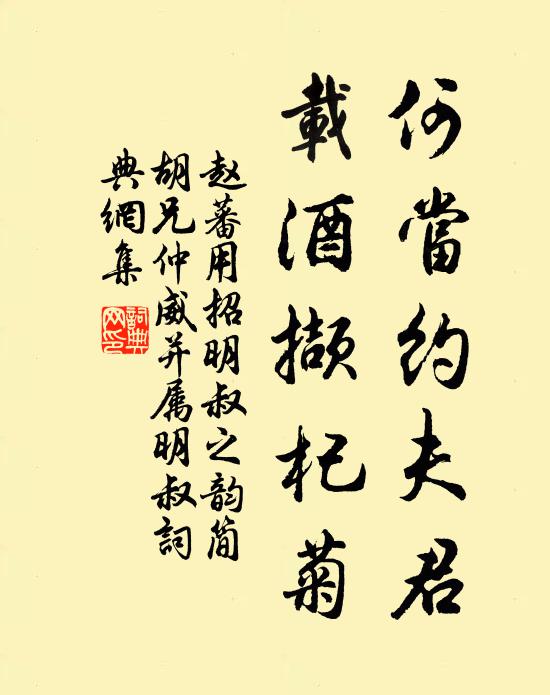 何當約夫君
載酒擷杞菊
赵蕃用招明叔之韵简
胡兄仲威并属明叔詞
典網集
詞典
网印